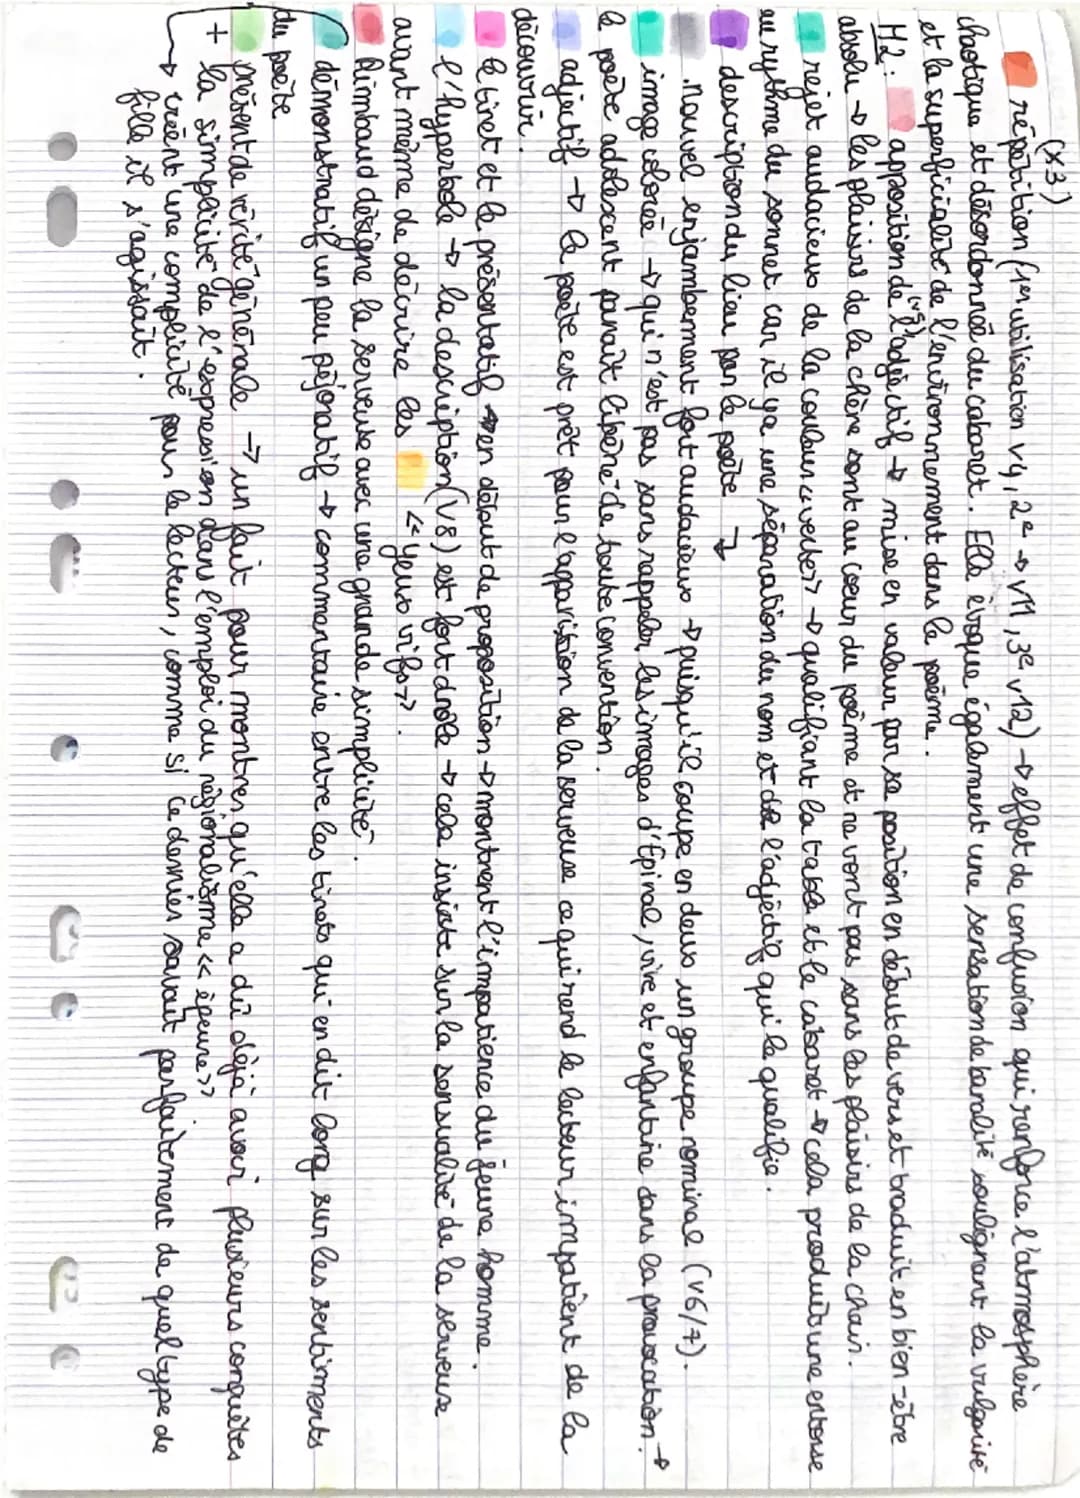 (x3)
répétition (1ère utilisation v4, 2e → v11, 3e v12) → effet de confusion qui renforce l'atmosphère
chaotique et désordonnée du cabaret. Elle évoque également une sensation de banalité soulignant la vulgarité
et la superficialité de l'environnement dans le poème.
M2: apposition de l'adjectif (v5) → mise en valeur par sa position en début de vers et traduit en bien-être
absolu → les plaisirs de la chère sont au cœur du poème et ne vont pas sans les plaisirs de la chair.
rejet audacieux de la couleur « verte » → qualifiant la table et le cabaret → cela produit une entorse
au rythme du sonnet car il y a une séparation du nom et de l'adjectif qui le qualifie.
description du lieu par le poète ↴
. nouvel enjambement fort audacieux → puisqu'il coupe en deux un groupe nominal (v6/7).
image colorée → qui n'est pas sans rappeler les images d'Épinal, vive et enfantine dans la provocation →
le poète adolescent paraît libéré de toute convention.
adjectif → le poète est prêt pour l'apparition de la serveuse ce qui rend le lecteur impatient de la
découvrir.
le tiret et le présentatif → en début de proposition → montrent l'impatience du jeune homme.
l'hyperbole → la description (v8) est fort drôle → cela insiste sur la sensualité de la serveuse
avant même de décrire les « yeux vifs ».
Rimbaud désigne la serveuse avec une grande simplicité.
démonstratif un peu péjoratif → commentaire entre les tirets qui en dit long sur les sentiments
du poète
présent de vérité générale → un fait pour montrer qu'elle a dû déjà avoir plusieurs conquêtes
+ la simplicité de l'expression dans l'emploi du régionalisme « épeure »
→ créent une complicité pour le lecteur, comme si ce dernier savait parfaitement de quel type de
fille il s'agissait.